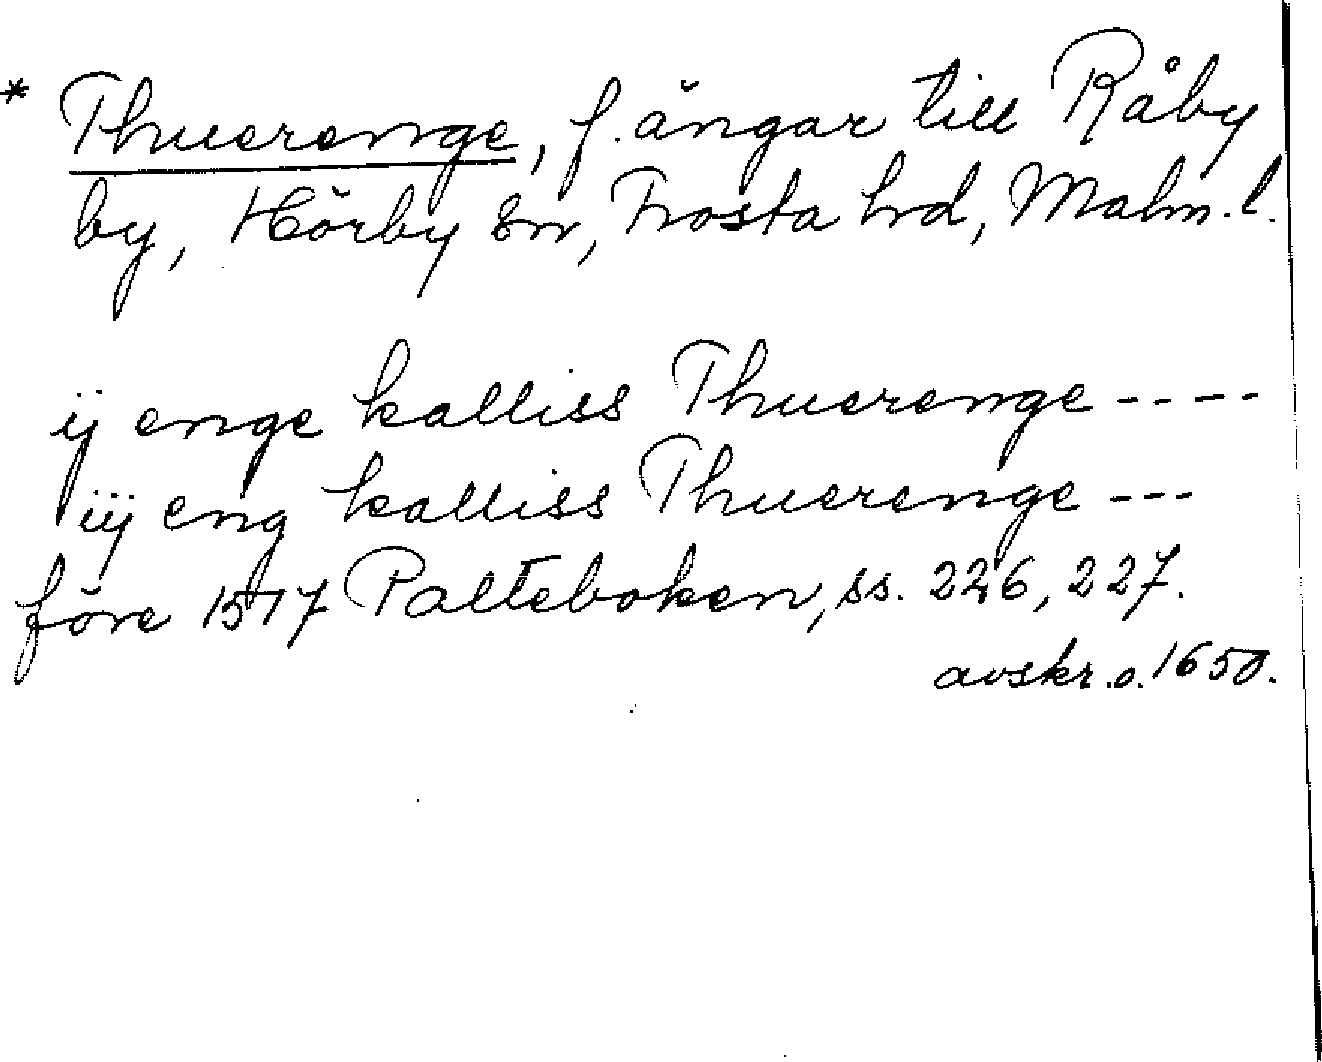 * Thuerenge, f. ängar till Råby
by, Hörby sn, Frosta hd, Malm. l.
ij enge kalliss Thuerenge ----
iij eng kalliss Thuerenge ---
före 1517 Palteboken, ss. 226, 227.
avskr. o. 1650.